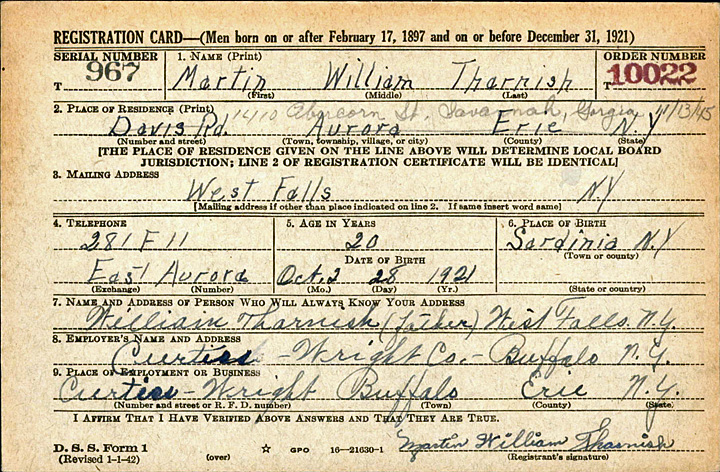 REGISTRATION CARD—(Men born on or after February 17, 1897 and on or before December 31, 1921)
SERIAL NUMBER 1. NAME (Print) ORDER NUMBER
T 967 Martin William Tharnish T 10022
(First) (Middle) (Last)
2. PLACE OF RESIDENCE (Print) 1410 Abercorn St. Savannah, Gorgia 1/13/45
Davis Rd. Aurora Erie N.Y
(Number and street) (Town, township, village, or city) (County) (State)
[THE PLACE OF RESIDENCE GIVEN ON THE LINE ABOVE WILL DETERMINE LOCAL BOARD
JURISDICTION; LINE 2 OF REGISTRATION CERTIFICATE WILL BE IDENTICAL]
3. MAILING ADDRESS
West Falls N.Y
[Mailing address if other than place indicated on line 2. If same insert word same]
4. TELEPHONE 5. AGE IN YEARS 6. PLACE OF BIRTH
281 F 11 20 Sardinia N.Y
DATE OF BIRTH (Town or county)
East Aurora Oct. 28 1921
(Exchange) (Number) (Mo.) (Day) (Yr.) (State or country)
7. NAME AND ADDRESS OF PERSON WHO WILL ALWAYS KNOW YOUR ADDRESS
William Tharnish (father) West Falls. N.Y.
8. EMPLOYER'S NAME AND ADDRESS
Curtiss - Wright Co. - Buffalo N.Y.
9. PLACE OF EMPLOYMENT OR BUSINESS
Curtiss - Wright Buffalo Erie N.Y.
(Number and street or R. F. D. number) (Town) (County) (State)
I AFFIRM THAT I HAVE VERIFIED ABOVE ANSWERS AND THAT THEY ARE TRUE.
D. S. S. Form 1 Martin William Tharnish
(Revised 1-1-42) (over) ☆ GPO 16—21630-1 (Registrant's signature)